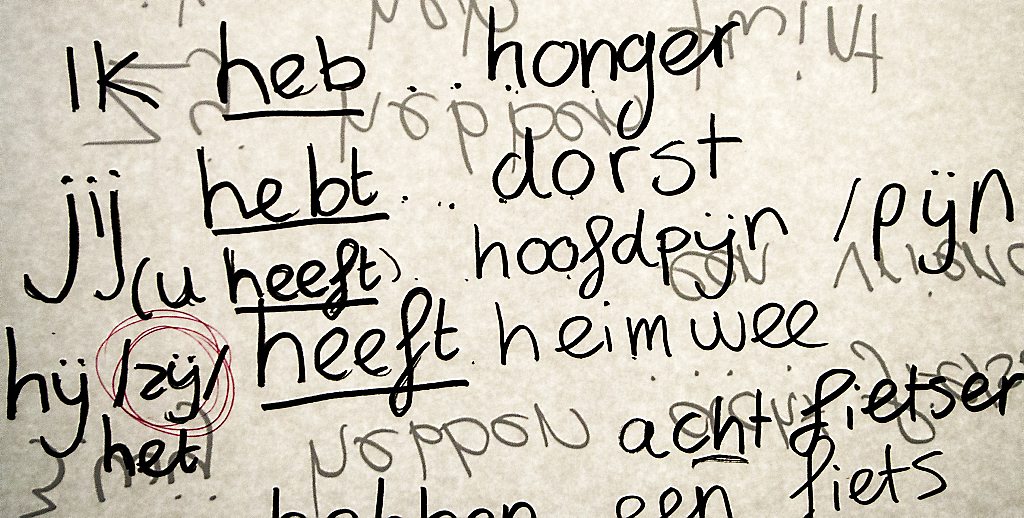 Ik heb ... honger
jij hebt ... dorst
(u heeft) .. hoofdpijn / pijn
hij /zij/ heeft heimwee
het acht fietser
hebben een fiets